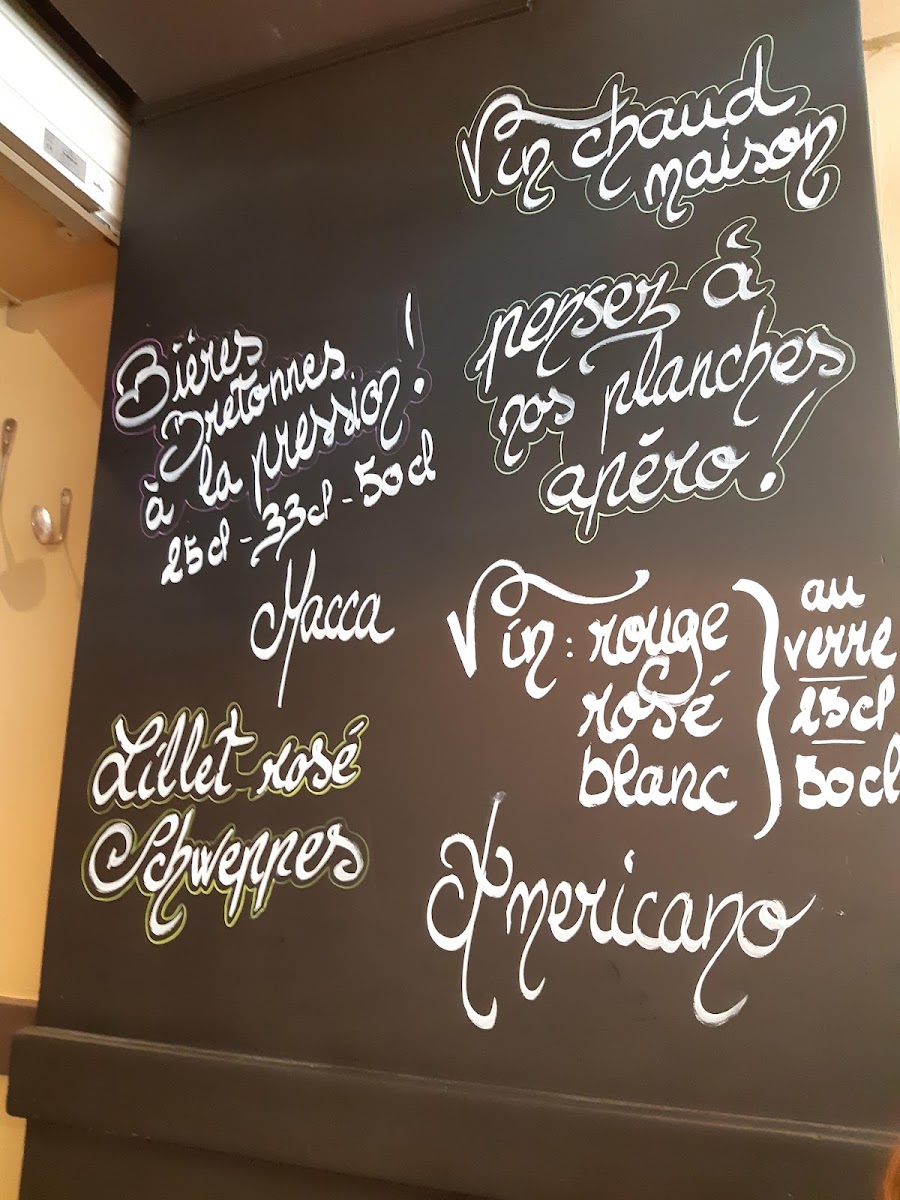 Vin chaud
maison
pensez à
nos planches
apéro !
Bières
Bretonnes
à la pression !
25cl - 33cl - 50cl
Macca
Vin : rouge
rosé
blanc
au
verre
25cl
50cl
Lillet rosé
Schweppes
Americano